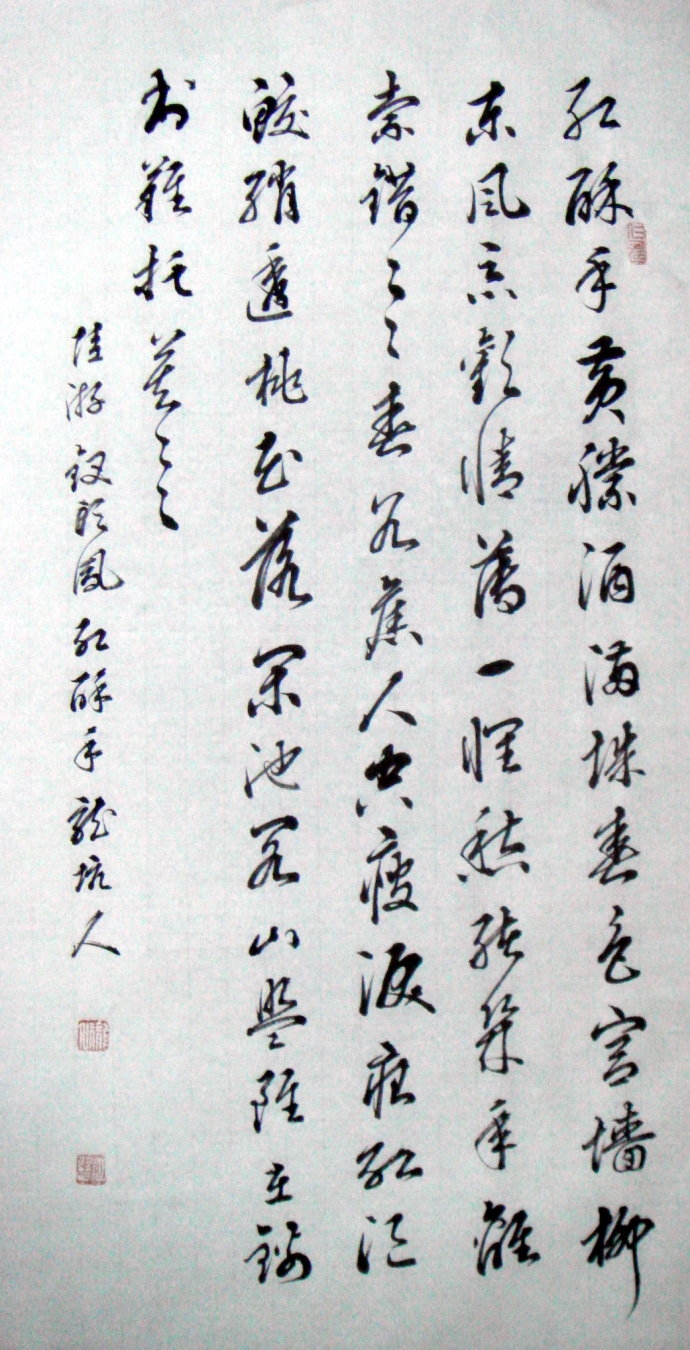 紅酥手黃縢酒滿城春色宮墻柳
東風惡歡情薄一懷愁緒幾年離
索錯々々春如舊人空瘦淚痕紅浥
鮫綃透桃花落閑池閣山盟雖在錦
書難托莫々々
陸游釵頭鳳紅酥手龍坑人